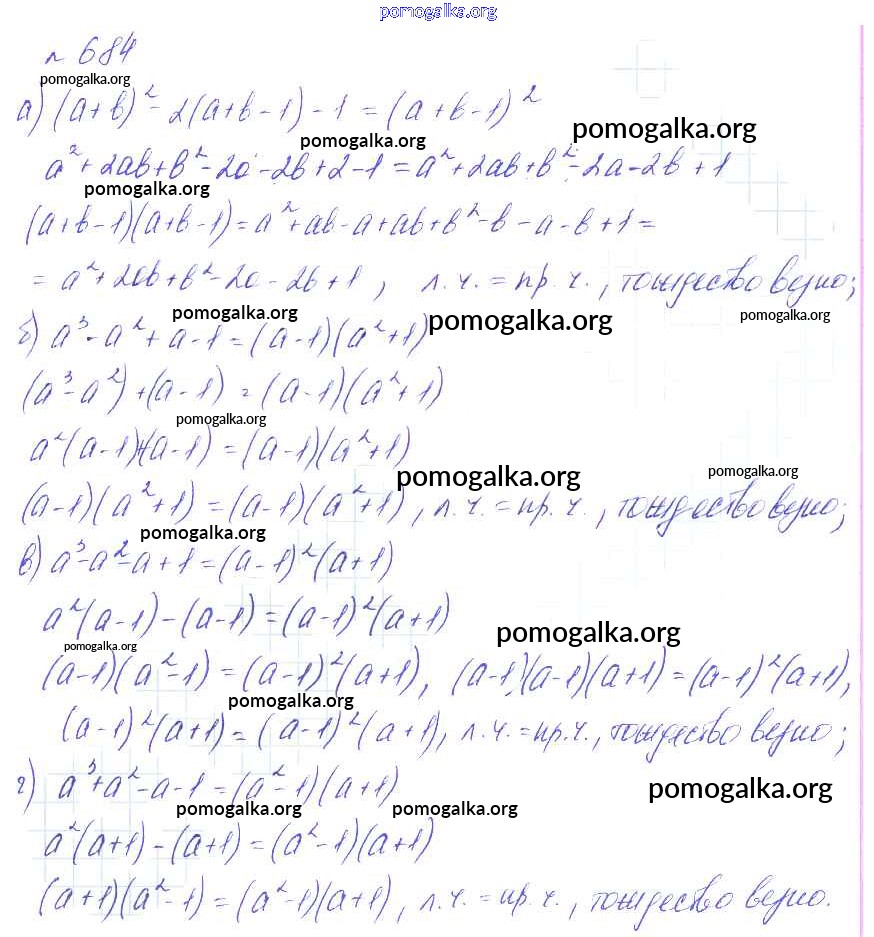 pomogalka.org
№ 684
pomogalka.org
а) (a+b)² - 2(a+b-1) - 1 = (a+b-1)²
pomogalka.org
pomogalka.org
a² + 2ab + b² - 2a - 2b + 2 - 1 = a² + 2ab + b² - 2a - 2b + 1
pomogalka.org
(a+b-1)(a+b-1) = a² + ab - a + ab + b² - b - a - b + 1 =
= a² + 2ab + b² - 2a - 2b + 1, л.ч. = пр.ч., тождество верно;
pomogalka.org
pomogalka.org
pomogalka.org
б) a³ - a² + a - 1 = (a-1)(a²+1)
(a³ - a²) + (a-1) = (a-1)(a²+1)
pomogalka.org
a²(a-1)+(a-1) = (a-1)(a²+1)
pomogalka.org
pomogalka.org
(a-1)(a²+1) = (a-1)(a²+1), л.ч. = пр.ч., тождество верно;
pomogalka.org
в) a³ - a² - a + 1 = (a-1)²(a+1)
a²(a-1) - (a-1) = (a-1)²(a+1)
pomogalka.org
pomogalka.org
(a-1)(a²-1) = (a-1)²(a+1), (a-1)(a-1)(a+1) = (a-1)²(a+1),
pomogalka.org
(a-1)²(a+1) = (a-1)²(a+1), л.ч. = пр.ч., тождество верно;
г) a³ + a² - a - 1 = (a²-1)(a+1)
pomogalka.org
pomogalka.org
pomogalka.org
a²(a+1) - (a+1) = (a²-1)(a+1)
(a+1)(a²-1) = (a²-1)(a+1), л.ч. = пр.ч., тождество верно.